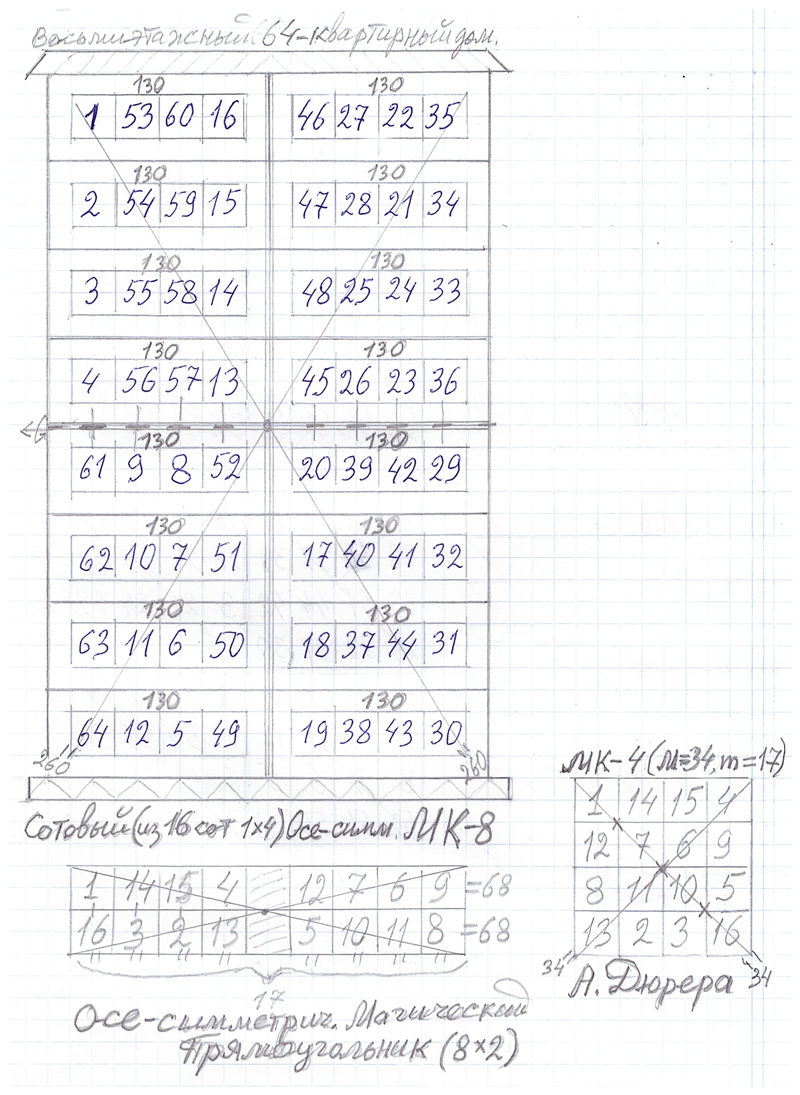 Восьмиэтажный 64-квартирный дом.
130 130
1 53 60 16 46 27 22 35
130 130
2 54 59 15 47 28 21 34
130 130
3 55 58 14 48 25 24 33
130 130
4 56 57 13 45 26 23 36
130 130
61 9 8 52 20 39 42 29
130 130
62 10 7 51 17 40 41 32
130 130
63 11 6 50 18 37 44 31
130 130
64 12 5 49 19 38 43 30
260 260
Сотовый (из 16 сот 1×4) Осе-симм. МК-8
1 14 15 4 12 7 6 9 =68
16 3 2 13 5 10 11 8 =68
17
Осе-симметрич. Магический
Прямоугольник (8×2)
МК-4 (М=34, m=17)
1 14 15 4
12 7 6 9
8 11 10 5
13 2 3 16
34 34
А. Дюрера